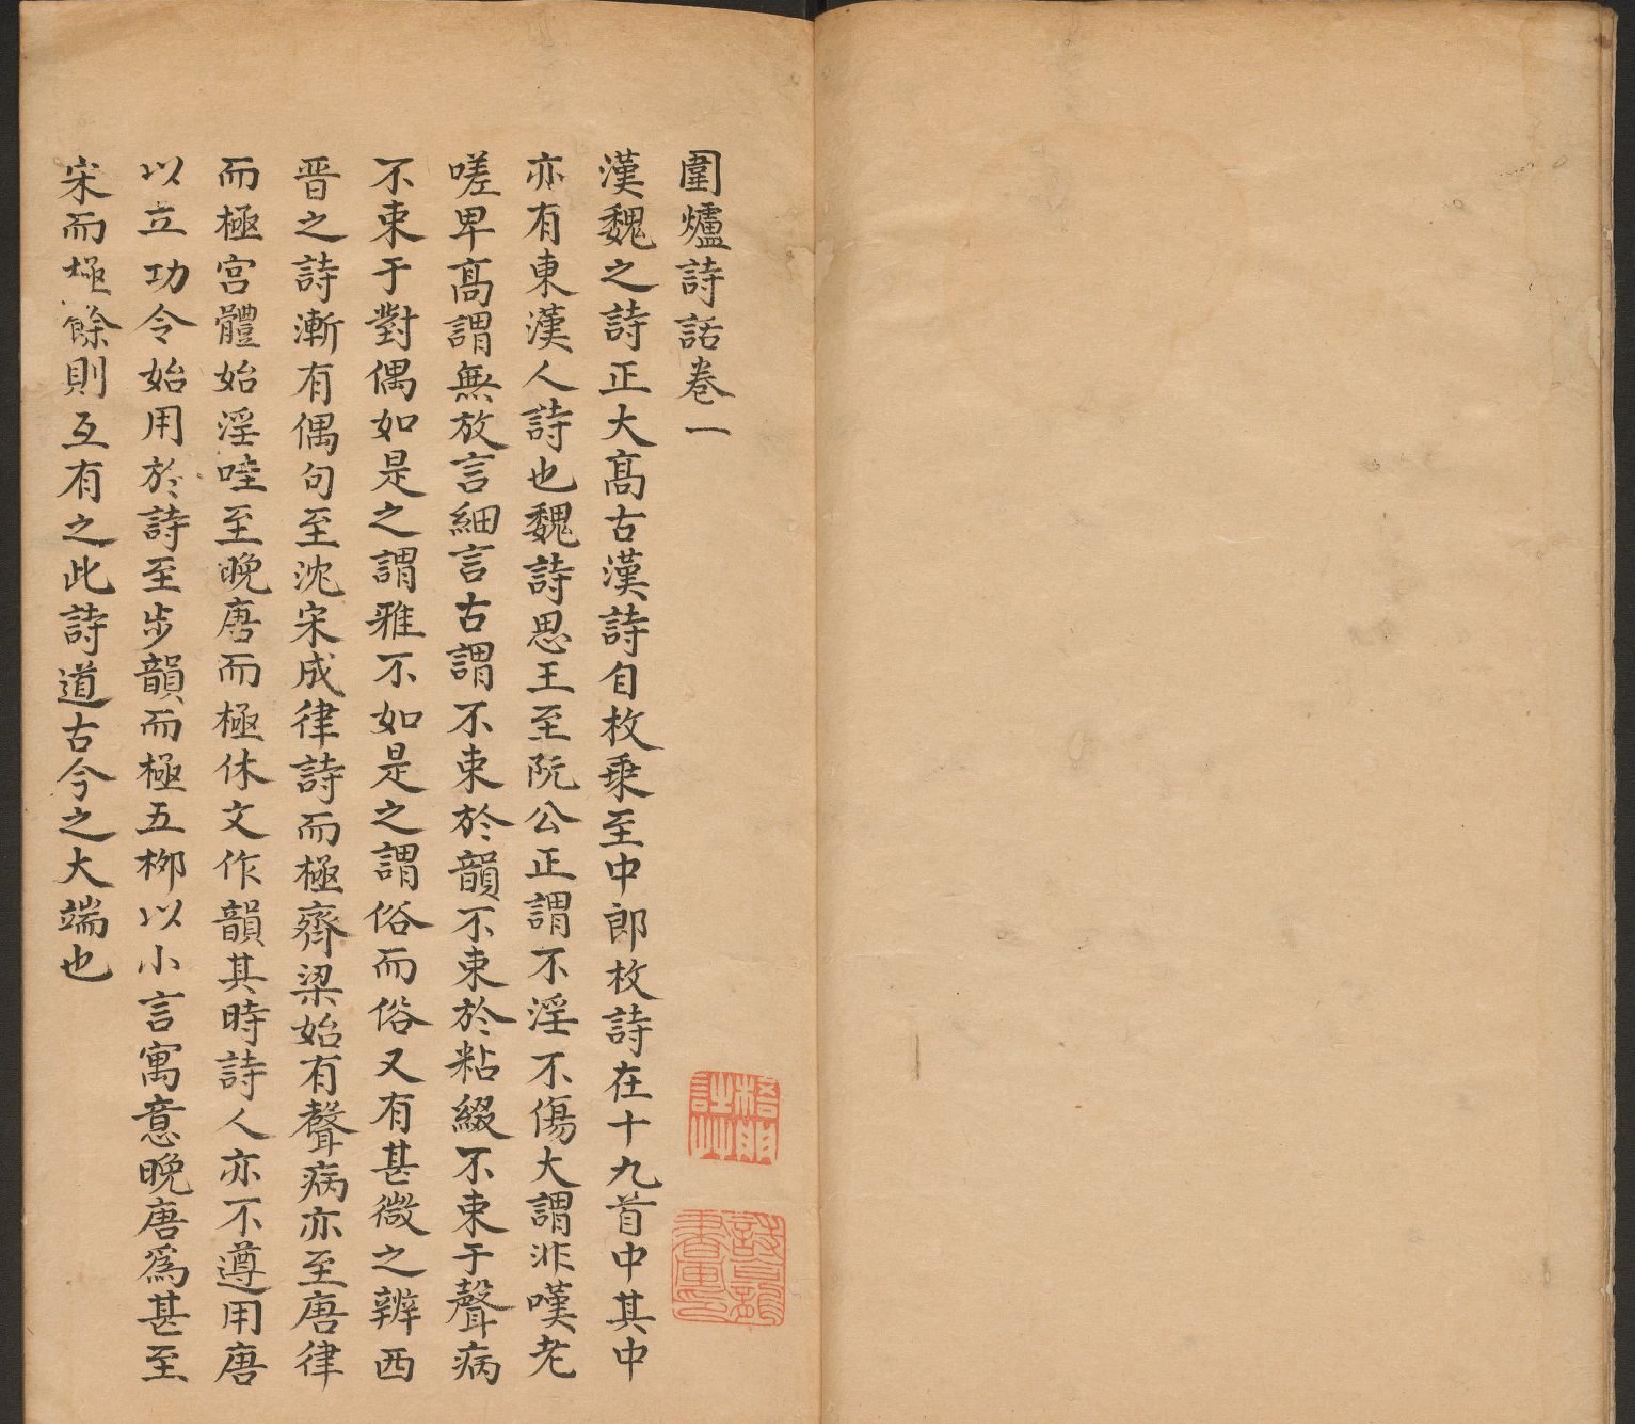 圍爐詩話卷一
漢魏之詩正大髙古漢詩自枚乗至中郎枚詩在十九首中其中
亦有東漢人詩也魏詩思王至阮公正謂不淫不傷大謂非嘆老
嗟卑髙謂無放言細言古謂不束於韻不束於粘綴不束于聲病
不束于對偶如是之謂雅不如是之謂俗而俗又有甚微之辨西
晋之詩漸有偶句至沈宋成律詩而極齊梁始有聲病亦至唐律
而極宫體始淫哇至晚唐而極休文作韻其時詩人亦不遵用唐
以立功令始用於詩至步韻而極五柳以小言寓意晚唐爲甚至
宋而極餘則互有之此詩道古今之大端也